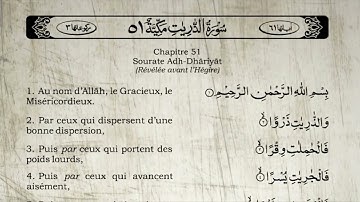 سُوْرَةُ الذّٰرِيٰتِ مَكِّيَّةٌ ٥١
Chapitre 51
Sourate Adh-Dhāriyāt
(Révélée avant l'Hégire)
1. Au nom d'Allāh, le Gracieux, le
Miséricordieux.
بِسْمِ اللّٰهِ الرَّحْمٰنِ الرَّحِيْمِ
2. Par ceux qui dispersent d'une
bonne dispersion,
وَالذّٰرِيٰتِ ذَرْوًا
3. Puis par ceux qui portent des
poids lourds,
فَالْحٰمِلٰتِ وِقْرًا
4. Puis par ceux qui avancent
aisément,
فَالْجٰرِيٰتِ يُسْرًا